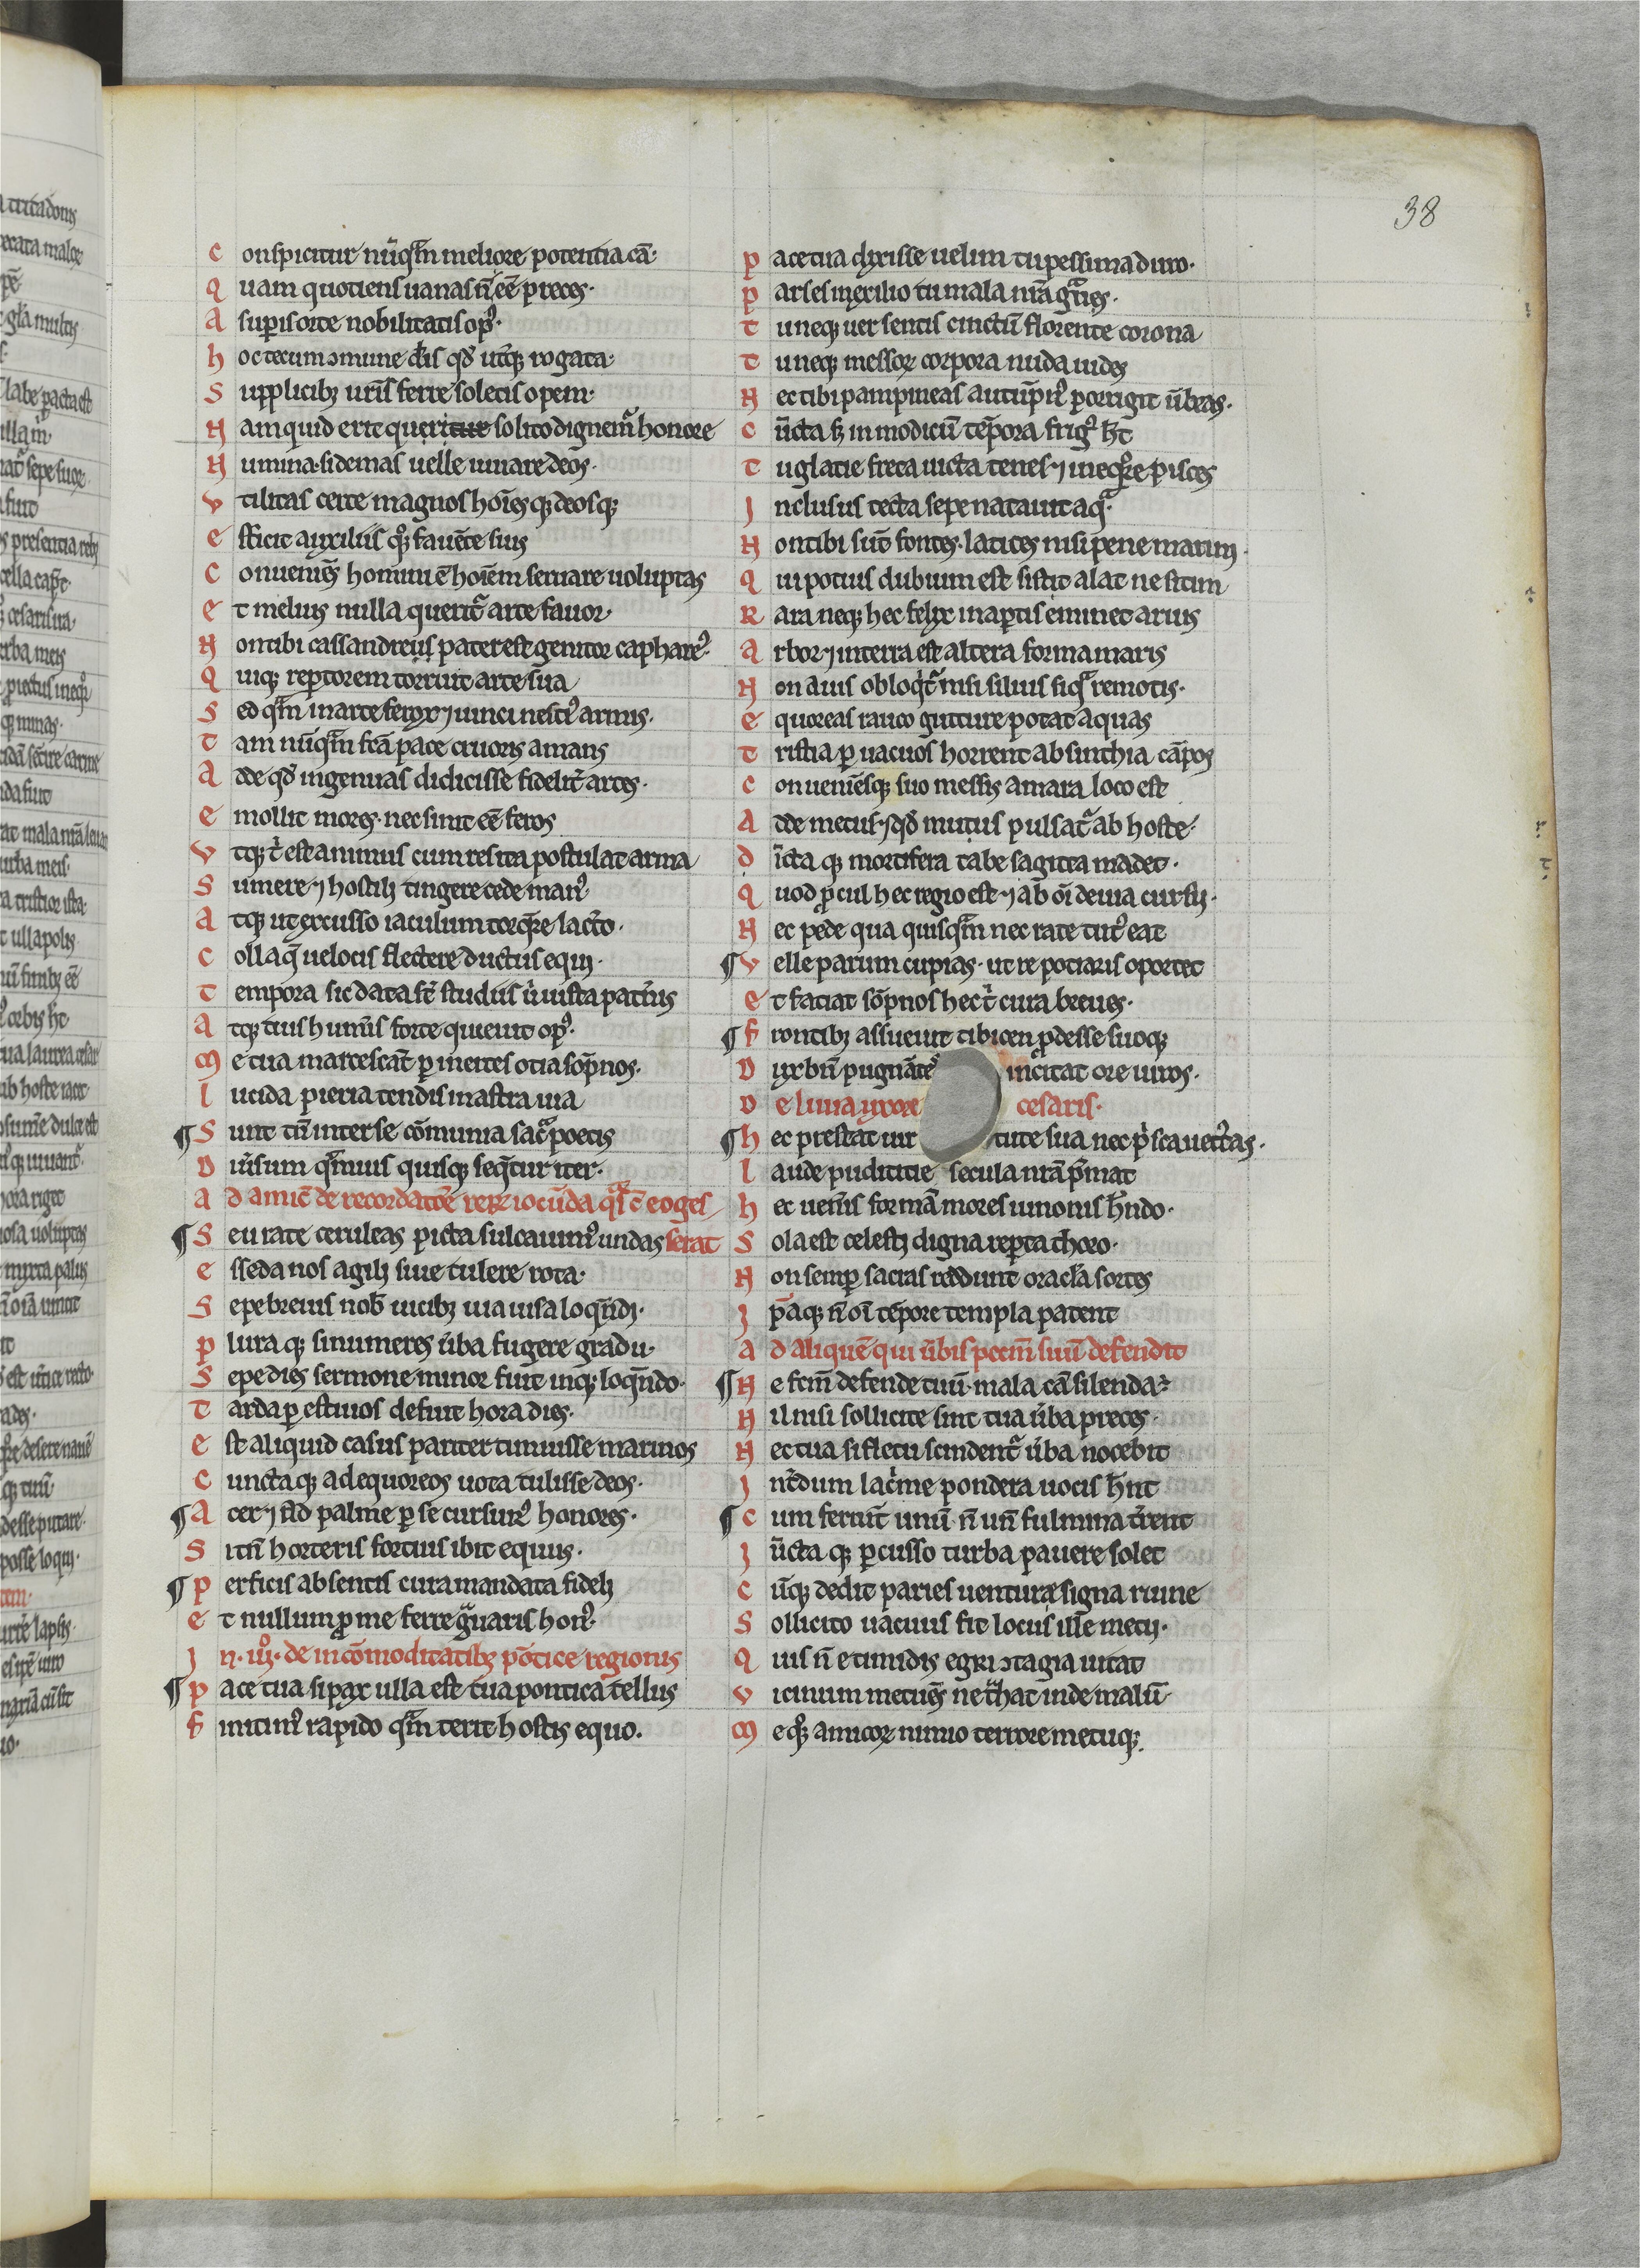 38
Conspicitur nūq̄m meliore potentia cā·
Quam quotiens uanas n̄ eē preces·
A superis orte nobilitatis opꝰ·
hoc tecum ɔmune d̄is qđ uterq; rogata·
Supplicibꝫ ur̄is ferre soletis opem·
Nam quid erit queritur solito dignemur honore
Numina· si demas uelle iuuare deos·
Vtilitas certe magnos hoīesq; deosq;
efficit auxiliis q̊q; fauēte suis
Conueniēs homini ē hoīem seruare uoluptas
et melius nulla querit̄ arte fauor·
Non tibi cassandreus pater est genitor caphareꝰ·
Quiq; reptorem torruit arte sua
Sed q̄m marte ferox ⁊ uinci nesciꝰ armis·
Tam nūq̄m fcā pace cruoris amans
Adde qđ ingenuas didicisse fidelit̄ artes·
emollit mores· nec sinit eē feros
Vtq; t̄ est animus cum res ita postulat arma
Sumere ⁊ hostili tingere cede manꝰ
Atq; ut excusso iaculum torq̄re lac̄to·
Collaq; uelocis flectere ductus equi·
Tempora sic data st̄ studiis ubi iusta pat̄nis
Atq; suis humīs forte quieuit opꝰ·
Me tua marcescāt p inertes otia sōpnos·
lucida pieria tendis in astra uia
¶ Sunt tn̄ inter se cōmunia sac̄ poetis
Diuersum q̄muis quisq; seq̄tur iter·
ad amic̄ de recordatōe reꝝ iocūda q̄ si c̄ eo ges
¶ Seu rate ceruleas picta sulcauimꝰ undas serat
esseda nos agili siue tulere rota·
Sepe breuis nob̄ uicibꝫ uia uisa loq̄ndi·
pluraq; si numeres ūba fuere gradu·
Sepe dies sermone minor fuit inq; loq̄ndo·
Tarda p estiuos defuit hora dies·
est aliquid casus pariter timuisse marinos
Cunctaq; ad equoreos uota tulisse deos·
¶ Acer ⁊ ad palme p se cursurꝰ honores·
Si tn̄ horteris fortius ibit equus·
¶ perficis absentis cura mandata fideli
et nullum p me ferre grauaris honꝰ·
Jn· iiiº· de incōmoditatibꝫ pōtice regionis
¶ pace tua si pax ulla est tua pontica tellus
finitimꝰ rapido q̄m terit hostis equo.
pace tua dixisse uelim tu pessima duro·
pars es in exilio tu mala nr̄a gͣues·
Tu neq; uer sentis cinctū florente corona
Tu neq; messoꝝ corpora nuda uides
Nec tibi pampineas autūpnꝰ porrigit ūbras·
Cūcta sꝫ in modicū tēpora frigꝰ h̄t
Tu glacie freta uicta tenes ⁊ in eq̊re pisces
Jnclusus tecta sepe natauit aqͣ·
Non tibi sūt fontes· latices nisi pene marini·
Qui potius dubium est sistit alat ne sitim
Rara neq; hec felix in aptis eminet aruis
arbor ⁊ in terra est altera forma maris
Non auis obloq̄t̄ nisi siluis siqͣ remotis·
equoreas rauco guture potat aquas
Tristia p uacuos horrent absinthia cāpos
Conueniēsq; suo messis amara loco est
Adde metus ⁊ qđ mutus pulsat̄ ab hoste·
dīctaq; mortifera tabe sagitta madet·
Quod pcul hec regio est ⁊ ab oī deuia cursu·
Nec pede qua quisq̄m nec rate tutꝰ eat
¶ Velle parum cupias· ut re potiaris oportet
et faciat sōpnos hec t̄ cura breues·
¶ frontibꝫ assueuit tibicen pdesse suoq;
Dux bn̄ pugnātes incitat ore uiros·
De liuia uxore cesaris·
¶ hec prestat uirtute sua ne p̄sca uetustas·
laude pudicitie secula nr̄a p̄mat
hec ueneris formā mores iunonis h̄ndo·
Sola est celesti digna repta thoro·
Non semp sacras reddunt oracla sortes
Jpaq; n̄ oī tēpore templa patent
ad aliquē qui ūbis pccm̄ suū defendit
¶ Ne fcm̄ defende tuū· mala cā silenda ē
Nil nisi sollicite sint tua ūba preces·
Nec tua si fletu scindent̄ ūba nocebit
Jnt̄dum lac̄me pondera uocis h̄nt
¶ Cum feriūt unū n̄ un̄ fulmina t̄rent
Jūctaq; pcusso turba pauere solet
Cūq; dedit paries uenture signa ruine
Sollicito uacuus fit locus ille metu·
Quis n̄ e timidis egri ɔtagia uitat
Vicinum metuēs ne t̄hat inde malū·
Me q̊q; amicoꝝ nimio terrore metuq;